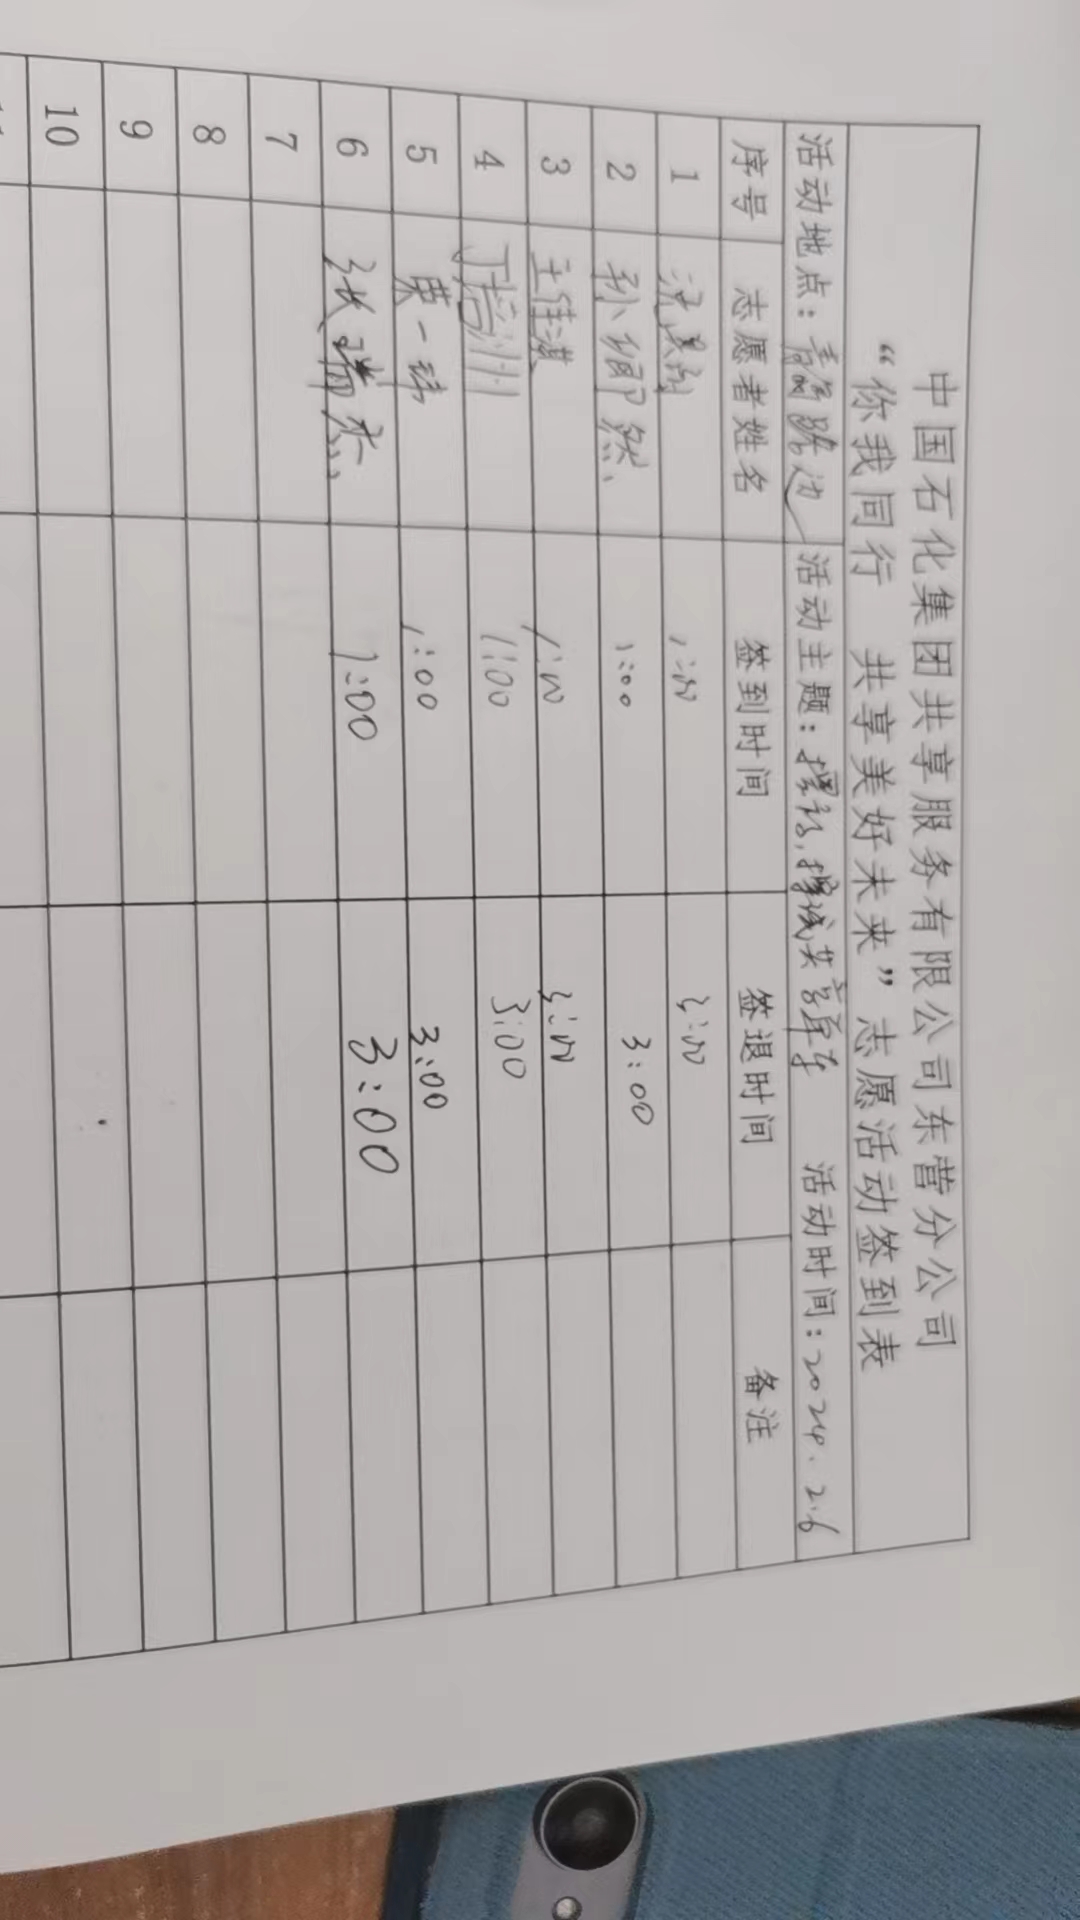 中国石化集团共享服务有限公司东营分公司
“你我同行 共享美好未来”志愿活动签到表
活动地点：路边 活动主题：摆放，擦拭共享单车 活动时间：2024.2.6
序号 志愿者姓名 签到时间 签退时间 备注
1 1:00 3:00
2 孙卿然 1:00 3:00
3 王佳淇 1:00 3:00
4 1:00 3:00
5 黄一 1:00 3:00
6 张瑞杰 1:00 3:00
7
8
9
10